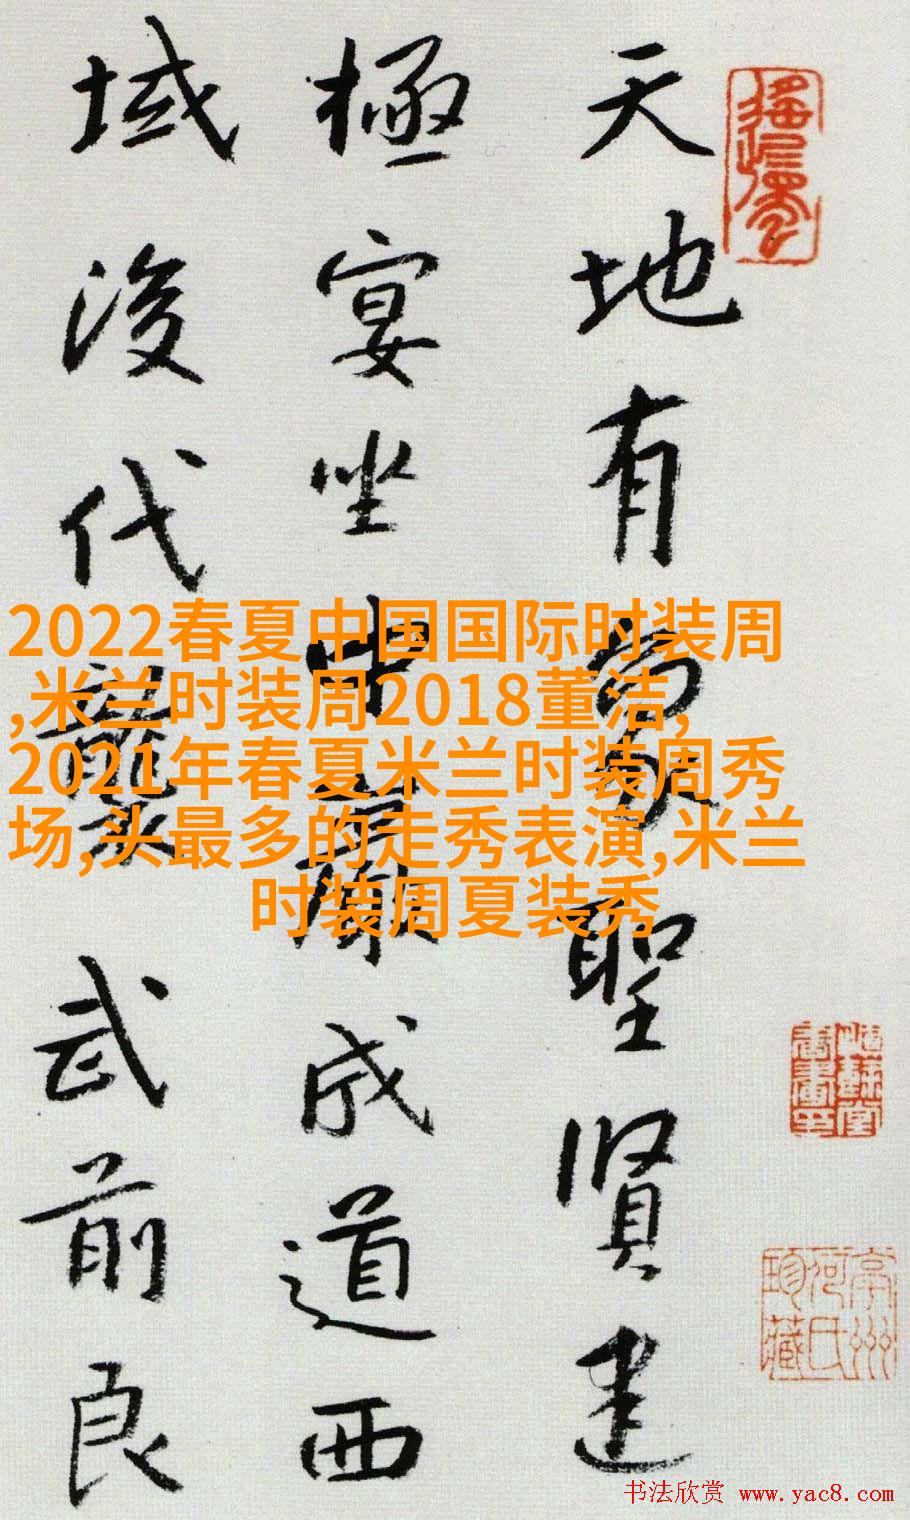 天地有象聖賢建
極宴坐中嚴成道西
域後代襲武前良
2022春夏中国国际时装周
,米兰时装周2018董洁,
2021年春夏米兰时装周秀
场,头最多的走秀表演,米兰
时装周夏装秀
亭州
河氏
珍藏
书法欣赏 www.yac8.com